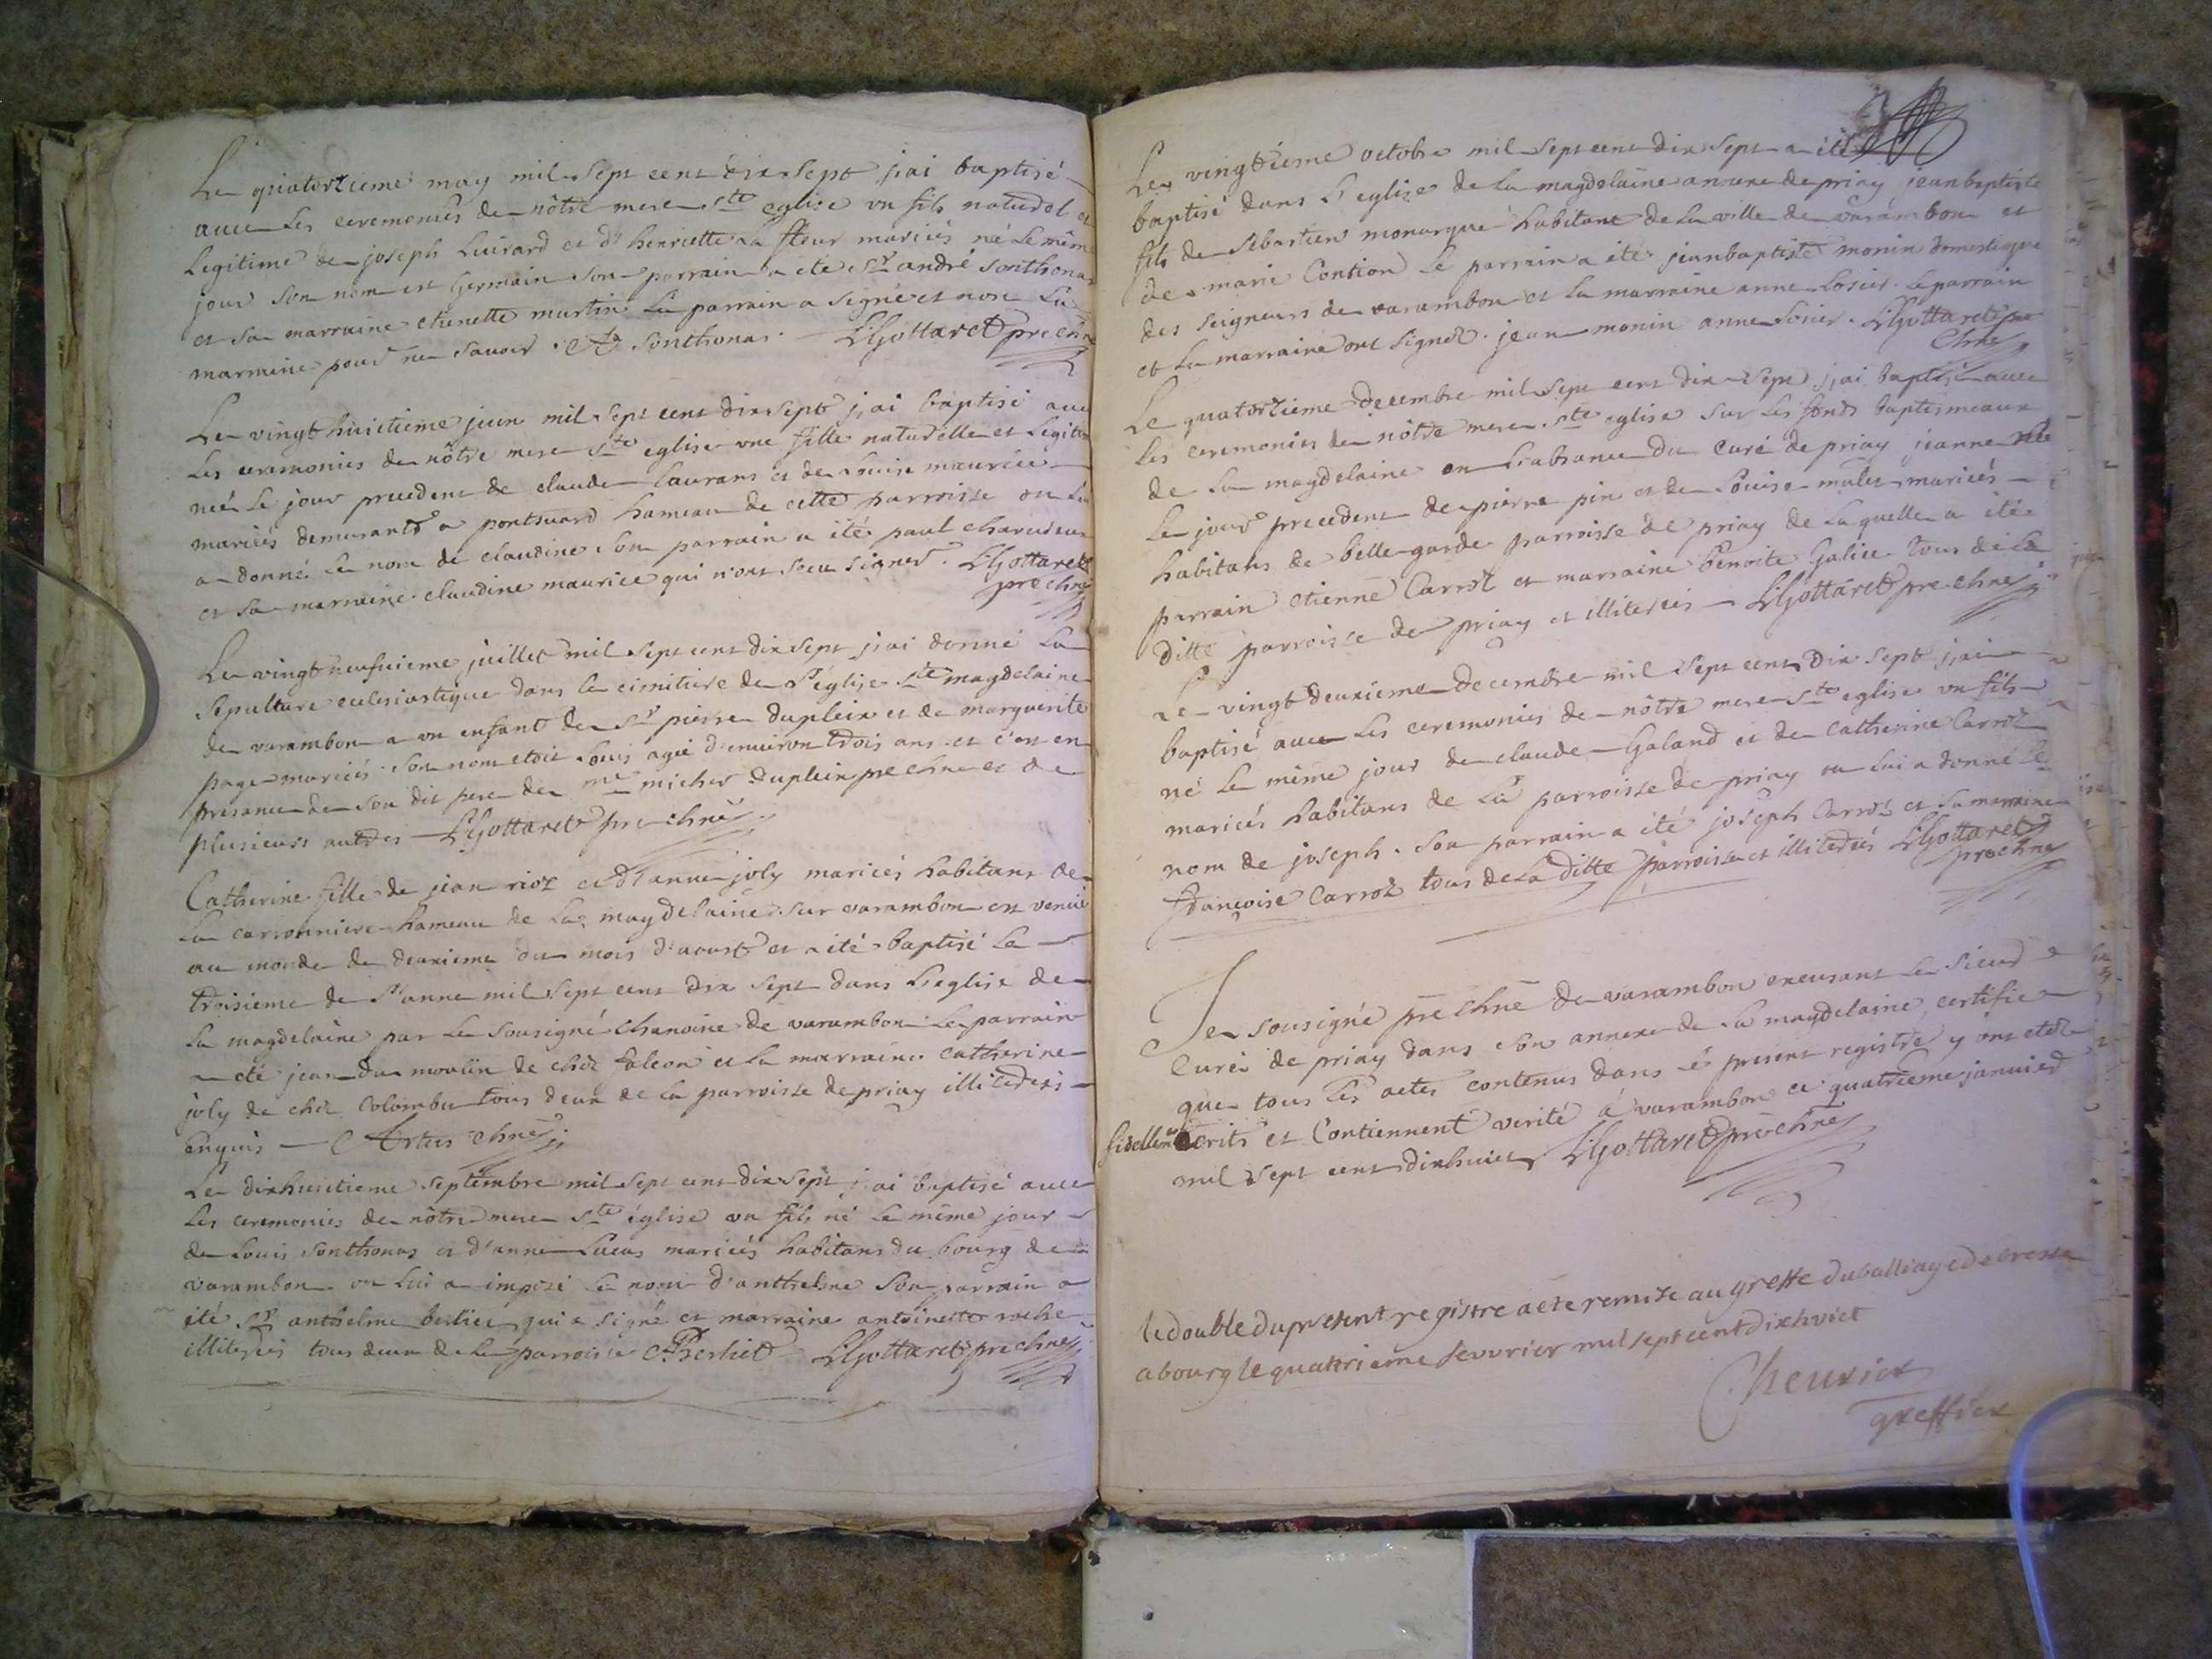 Le quatorzieme may mil sept cent dix sept j'ai baptisé
avec les ceremonies de nôtre mere ste eglise un fils naturel et
legitime de joseph Luirard et d' henriette La fleur mariés né le même
jour son nom est Germain son parrain a été Sr andré Sonthonas
et sa marraine etienette martin Le parrain a signé et non La
marraine pour ne savoir. A Sonthonas. LGottaret pre chne
Le vingt huictieme juin mil sept cent dix sept j'ai baptisé avec
les ceremonies de nôtre mere ste eglise une fille naturelle et legitime
née le jour precedent de claude Laurans et de Louise maurice
mariés demurants a pontsuard hameau de cette parroisse on lui
a donné le nom de claudine son parrain a été paul
et sa marraine claudine maurice qui n'ont sceu signer. LGottaret
pre chne
Le vingt neufuieme juillet mil sept cent dix sept j'ai donné la
sepulture eclesiastique dans le cimitiere de l'église ste magdelaine
de varambon a un enfant de sr pierre dupleix et de marguerite
page mariés. son nom etoit Louis agé d'environ trois ans et c'est en
presance de son dit pere de mre micher Duplein pre chne et de
plusieurs autres LGottaret pre chne
Catherine fille de jean rioz et d'anne joly mariés habitans de
la carronniere hameau de la magdelaine sur varambon est venüe
au monde le deuxieme du mois d'aoust et a été baptisé le
troisieme de l'anne mil sept cent dix sept dans l'eglise de
la magdelaine par le sousigné chanoine de varambon Le parrain
a eté jean du moulin de chez falcon et la marraine catherine
joly de chez Colombu tous deux de la parroisse de priay illiterés
enquis Artus chne
Le dixhuictieme septembre mil sept cent dix sept j'ai baptisé avec
les ceremonies de nôtre mere ste église un fils né le même jour
de Louis Sonthonas et d'anne Lucas mariés habitans du bourg de
varambon. on lui a imposé le nom d'anthelme son parrain a
été sr anthelme berliet qui a signé et marraine antoinette roche
illiterés tous deux de la parroisse ABerliet LGottaret pre chne
Le vingtieme octobre mil sept cent dix sept a été
baptisé dans l'eglise de la magdelaine anexe de priay jean baptiste
fils de Sebastien monarque habitant de la ville de varambon et
de marie Contion le parrain a été jean baptiste monin domestique
des seigneurs de varambon et la marraine anne Losier. Le parrain
et la marraine ont signez. jean monin anne Losier. LGottaret pre
chne
Le quatorzieme decembre mil sept cent dix sept j'ai baptisé avec
les ceremonies de nôtre mere ste eglise sur les fonds baptismeaux
de la magdelaine en l'absance du curé de priay jeanne née
le jour precedent de pierre pin et de Louise mulet mariés
habitans de belle garde parroisse de priay de laquelle a été
parrain etienne Carroz et marraine benoite Galice tous de la
ditte parroisse de priay et illiterés LGottaret pre chne
Le vingt deuxieme decembre mil sept cent dix sept j'ai
baptisé avec les ceremonies de nôtre mere ste eglise un fils
né le même jour de claude Galand et de catherine Carroz
mariés habitans de la parroisse de priay on lui a donné le
nom de joseph. son parrain a été joseph Carroz et sa marraine
françoise Carroz tous de la ditte parroisse et illiterés LGottaret
pre chne
Je sousigné pre chne de varambon excusant le sieur
Curé de priay dans son annexe de la magdelaine, certifie
que tous les actes contenus dans le present registre y ont etez
fidellement ecrits et Contiennent verité a varambon ce quatrieme janvier
mil sept cent dixhuict LGottaret pre chne
le double du present registre a ete remise au greffe du balliage de bresse
a bourg le quattrieme fevvrier mil sept cent dixhuict
Cheurier
greffier